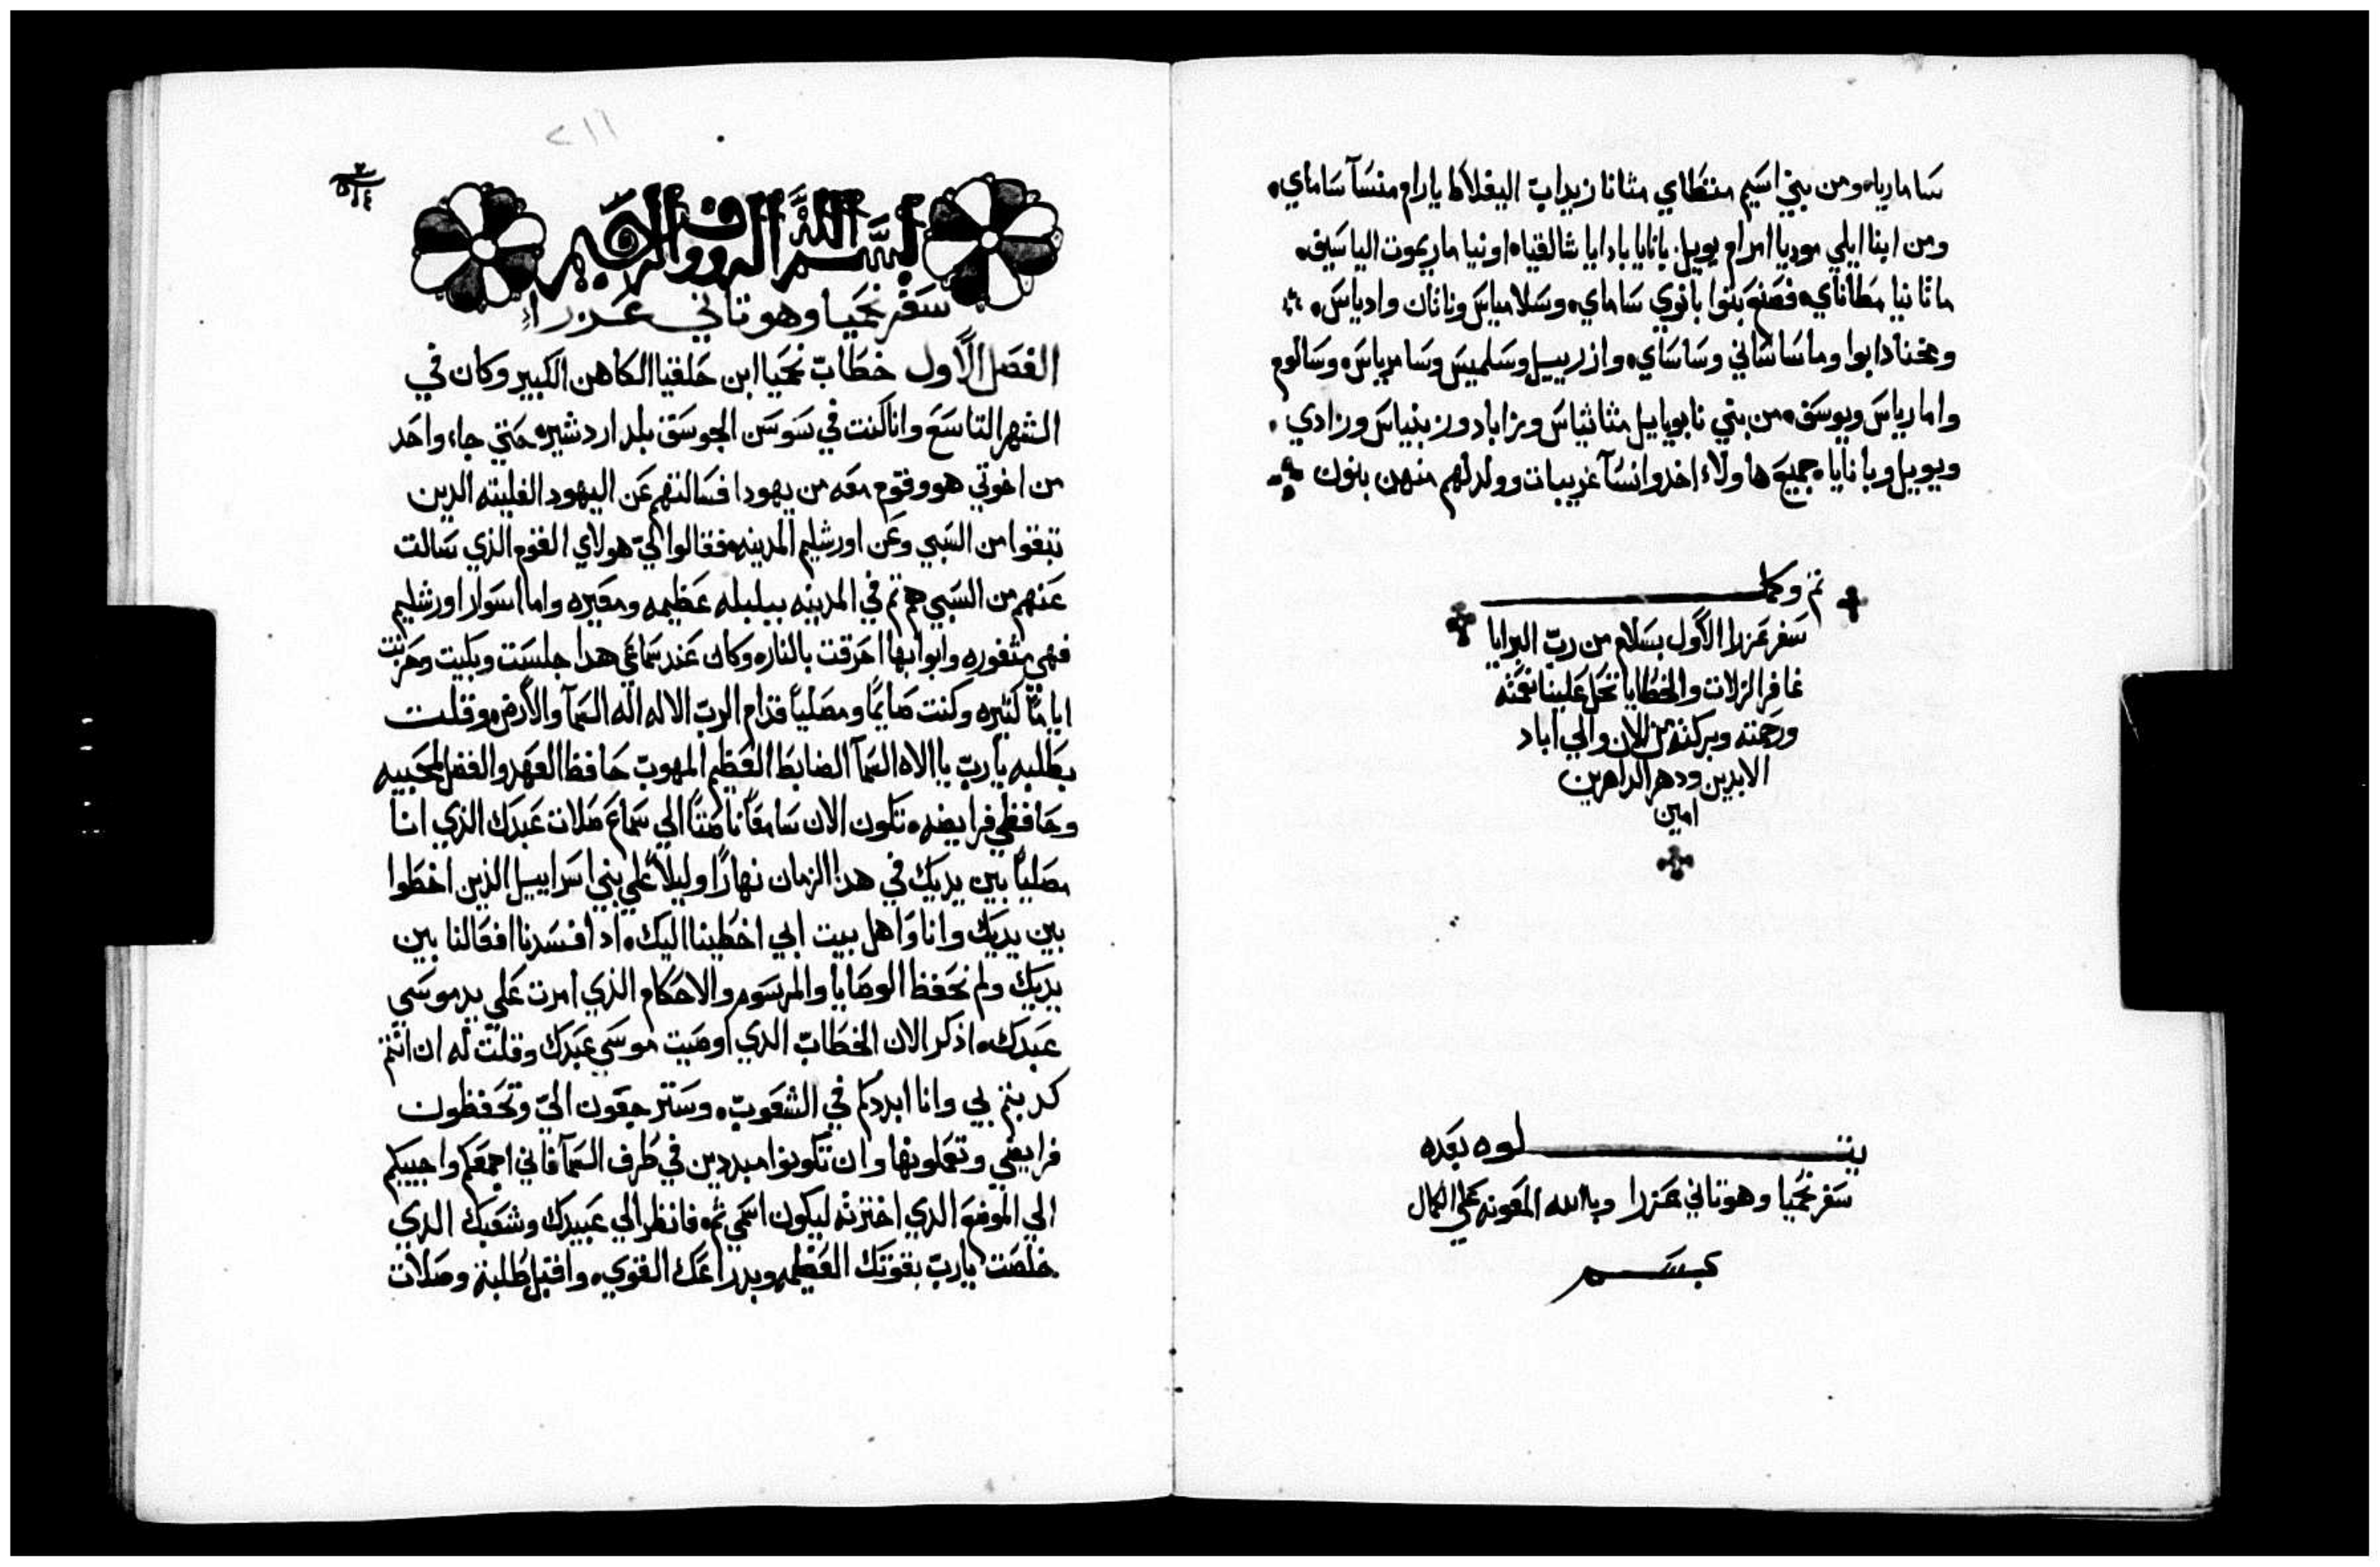 ساماريا ومن بني اسيم متطاي مثانا زيرات اليفلاط يارام منسآ ساماي
ومن ابنا ايلي موديا امرام يوييل بانايا بادايا شالقياه اونيا ماريموت الياسيف
مانانيا مطاناي فصنع بنوا بانوي ساماي وسلامياس وناثان وادياس
ومخنادابوا وماساشاني وساساي وازرييل وسلميس وسامرياس وسالوم
وامارياس ويوسف من بني نابو ياييل مثاثياس وزاباد وزبنياس وزادي
ويوييل وبانايا جميع هاولاء اخدوا نسآ غريبات وولد لهم منهن بنون
تم وكمل
سفر عزرا الاول بسلام من رب البرايا
غافر الزلات والخطايا تحل علينا نعمته
ورحمته وبركته من الان والي اباد
الابدين ودهر الداهرين
امين
يتلوه بعده
سفر نحميا وهو تاني عزرا وبالله المعونه علي الكمال
بسم
٢١١
بسم الله الرووف الرحيم
سفر نحميا وهو تاني عزراء
الفصل الاول خطاب نحميا ابن حلقيا الكاهن الكبير وكان في
الشهر التاسع وانا كنت في سوسن الجوسق بلد اردشير حتي جاء واحد
من اخوتي هو وقوم معه من يهودا فسالتهم عن اليهود الفليته الدين
تبقوا من السبي وعن اورشليم المدينه فقالوا لي هولاي القوم الذي سالت
عنهم من السبي هم تم في المدينه ببلبله عظيمه ومعيره واما اسوار اورشليم
فهي مثغوره وابوابها احرقت بالنار وكان عند سماعي هدا جلست وبكيت وحزنت
اياماً كثيره وكنت صايماً ومصلياً قدام الرب الاله اله السمآ والارض وقلت
بطلبه يا رب يا الاه السمآ الضابط العظيم المهوب حافظ العهد والفضل لمحبيه
وحافظي فرايضه تكون الان سامعاً ناصتاً الي سماع صلات عبدك الذي انا
مصلياً بين يديك في هدا الزمان نهاراً وليلاً علي بني اسراييل الذين اخطوا
بين يديك وانا واهل بيت ابي اخطينا اليك اد افسدنا افعالنا بين
يديك ولم نحفظ الوصايا والمرسوم والاحكام الذي امرت علي يد موسي
عبدك اذكر الان الخطاب الدي اوصيت موسي عبدك وقلت له ان انتم
كدبتم بي وانا ابددكم في الشعوب وسترجعون الي وتحفظون
فرايضي وتعملونها وان تكونوا مبددين في طرف السمآ فاني اجمعكم واجيبكم
الي الموضع الدي اخترته ليكون اسمي ثم فانظر الي عبيدك وشعبك الدي
خلصت يا رب بقوتك العظيمه وبدراعك القوي واقبل طلبة وصلات